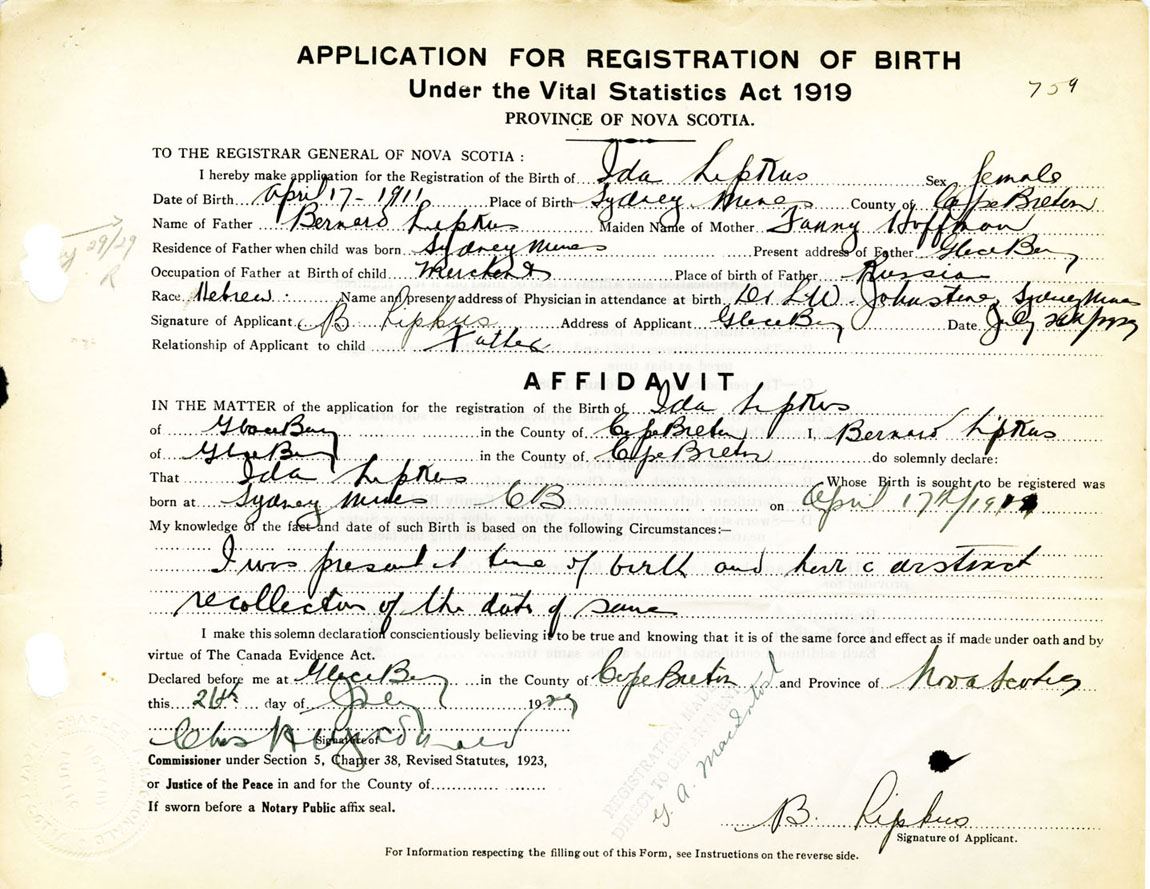 APPLICATION FOR REGISTRATION OF BIRTH
Under the Vital Statistics Act 1919
759
PROVINCE OF NOVA SCOTIA.
TO THE REGISTRAR GENERAL OF NOVA SCOTIA :
I hereby make application for the Registration of the Birth of Ida Lipkus Sex female
Date of Birth April 17 - 1911 Place of Birth Sydney Mines County of Cape Breton
Name of Father Bernard Lipkus Maiden Name of Mother Fanny Hoffman
29/29
R
Residence of Father when child was born Sydney Mines Present address of Father Glace Bay
Occupation of Father at Birth of child Merchant Place of birth of Father Russia
Race Hebrew Name and present address of Physician in attendance at birth Dr L.W. Johnstone, Sydney Mines
Signature of Applicant B Lipkus Address of Applicant Glace Bay Date July 26th/1929
Relationship of Applicant to child Father
AFFIDAVIT
IN THE MATTER of the application for the registration of the Birth of Ida Lipkus
of Glace Bay in the County of Cape Breton I, Bernard Lipkus
of Glace Bay in the County of Cape Breton do solemnly declare:
That Ida Lipkus Whose Birth is sought to be registered was
born at Sydney Mines CB on April 17th/1911
My knowledge of the fact and date of such Birth is based on the following Circumstances:—
I was present at time of birth and have a distinct
recollection of the date of same
I make this solemn declaration conscientiously believing it to be true and knowing that it is of the same force and effect as if made under oath and by
virtue of The Canada Evidence Act.
Declared before me at Glace Bay in the County of Cape Breton and Province of Nova Scotia
this 26th day of July 1929
Signature of
Commissioner under Section 5, Chapter 38, Revised Statutes, 1923,
or Justice of the Peace in and for the County of
If sworn before a Notary Public affix seal.
REGISTRATION MADE
DIRECT TO DEPARTMENT
G. A. MacIntosh
B. Lipkus
Signature of Applicant.
For Information respecting the filling out of this Form, see Instructions on the reverse side.